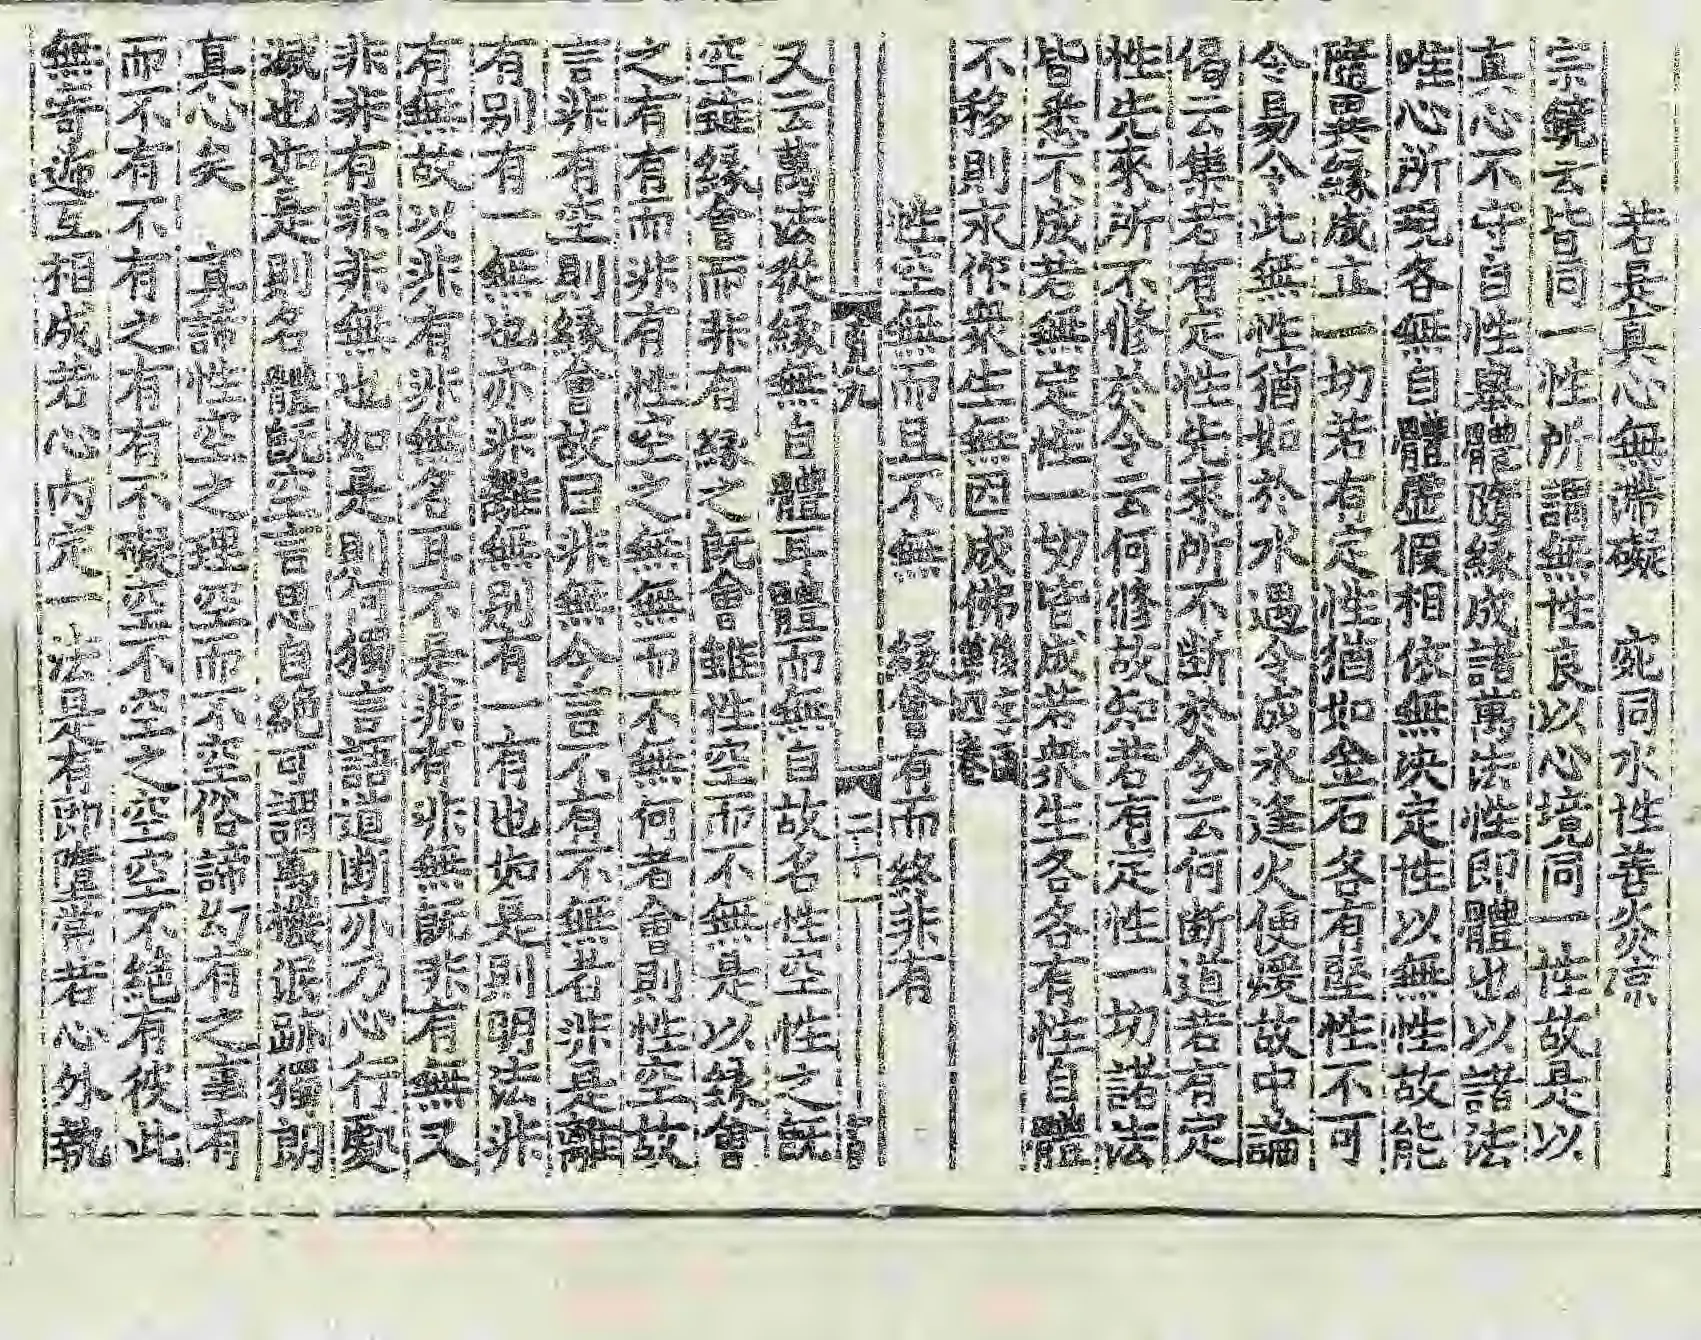 若是真心無滯礙　宛同水性善炎凉
宗鏡云皆同一性所謂無性良以心境同一性故是以
真心不守自性舉體隨緣成諸萬法性即體也以諸法
唯心所現各無自體虛假相依無決定性以無性故能
隨異緣成立一切若有定性猶如金石各有堅性不可
令易今此無性猶如於水遇令成氷逢火便煖故中論
偈云集若有定性先來所不斷於今云何斷道若有定
性先來所不修於今云何修故知若有定性一切諸法
皆悉不成若無定性一切皆成若衆生各各有性自體
不移則永作衆生無因成佛
性空無而且不無　緣會有而終非有
二十一
又云萬法從緣無自體耳體而無自故名性空性之既
空雖緣會而非有緣之既會雖性空而不無是以緣會
之有有而非有性空之無無而不無何者會則性空故
言非有空則緣會故曰非無今言不有不無者非是離
有別有一無也亦非離無別有一有也如是則明法非
有無故以非有非無名耳不是非有非無既非有無又
非非有非非無也如是則何獨言語道斷亦乃心行處
滅也如是則名體既空言思自絶可謂萬機泯跡獨朗
真心矣　真諦性空之理空而不空俗諦幻有之事有
而不有不有之有有不礙空不空之空空不絶有彼此
無寄遞互相成若心內定一法是有即墮常若心外執